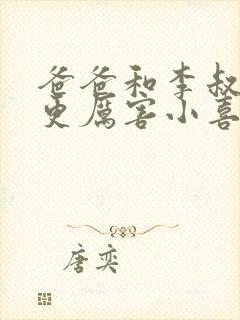 爸爸和李叔
更厉害小喜
唐奕